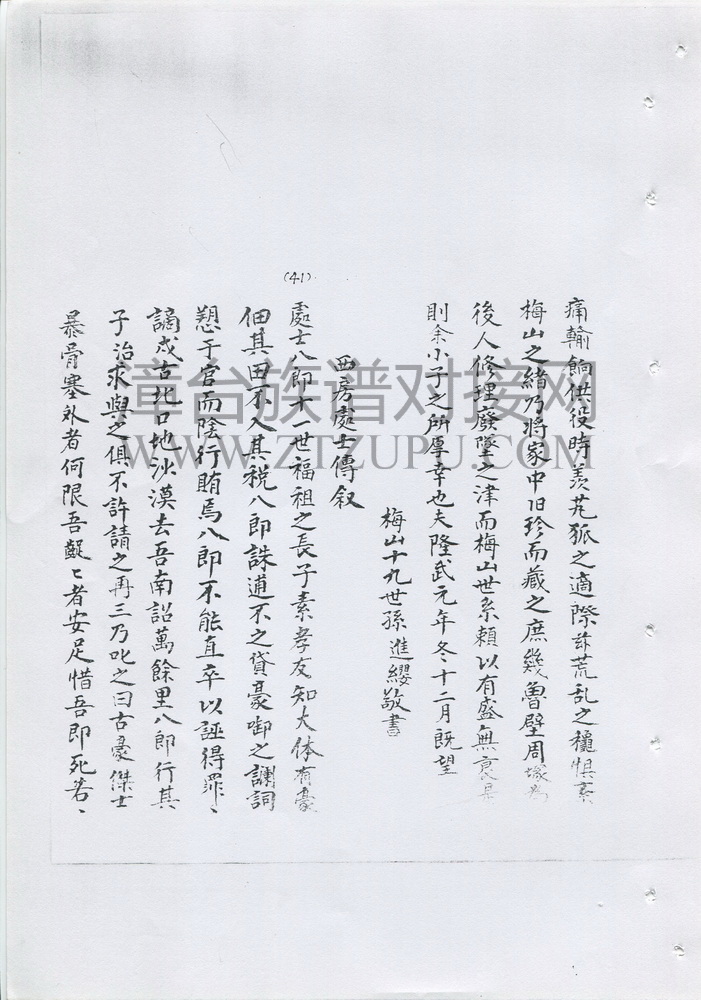 (41)
痛輸餉供役時羡芃狐之適際茲荒乱之穐惧紊
梅山之緒乃將家中旧珍而藏之庶幾魯壁周塚為
後人修理廢墜之津而梅山世系頼以有盛無衰具
則余小子之所厚幸也夫隆武元年冬十二月既望
梅山十九世孫進纓敬書
西房處士傳叙
處士八郎十一世福祖之長子素孝友知大体有豪
佃其田不入其税八郎誅逋不之貸豪啣之讕詞
愬于官而陰行賄焉八郎不能直卒以誣得罪、
謫戍古北口地沙漠去吾南詔萬餘里八郎行其
子治求與之俱不許請之再三乃叱之曰古豪傑士
暴骨塞外者何限吾齪〻者安足惜吾即死若、
漳台族谱对接网
WWW.ZTZUPU.COM